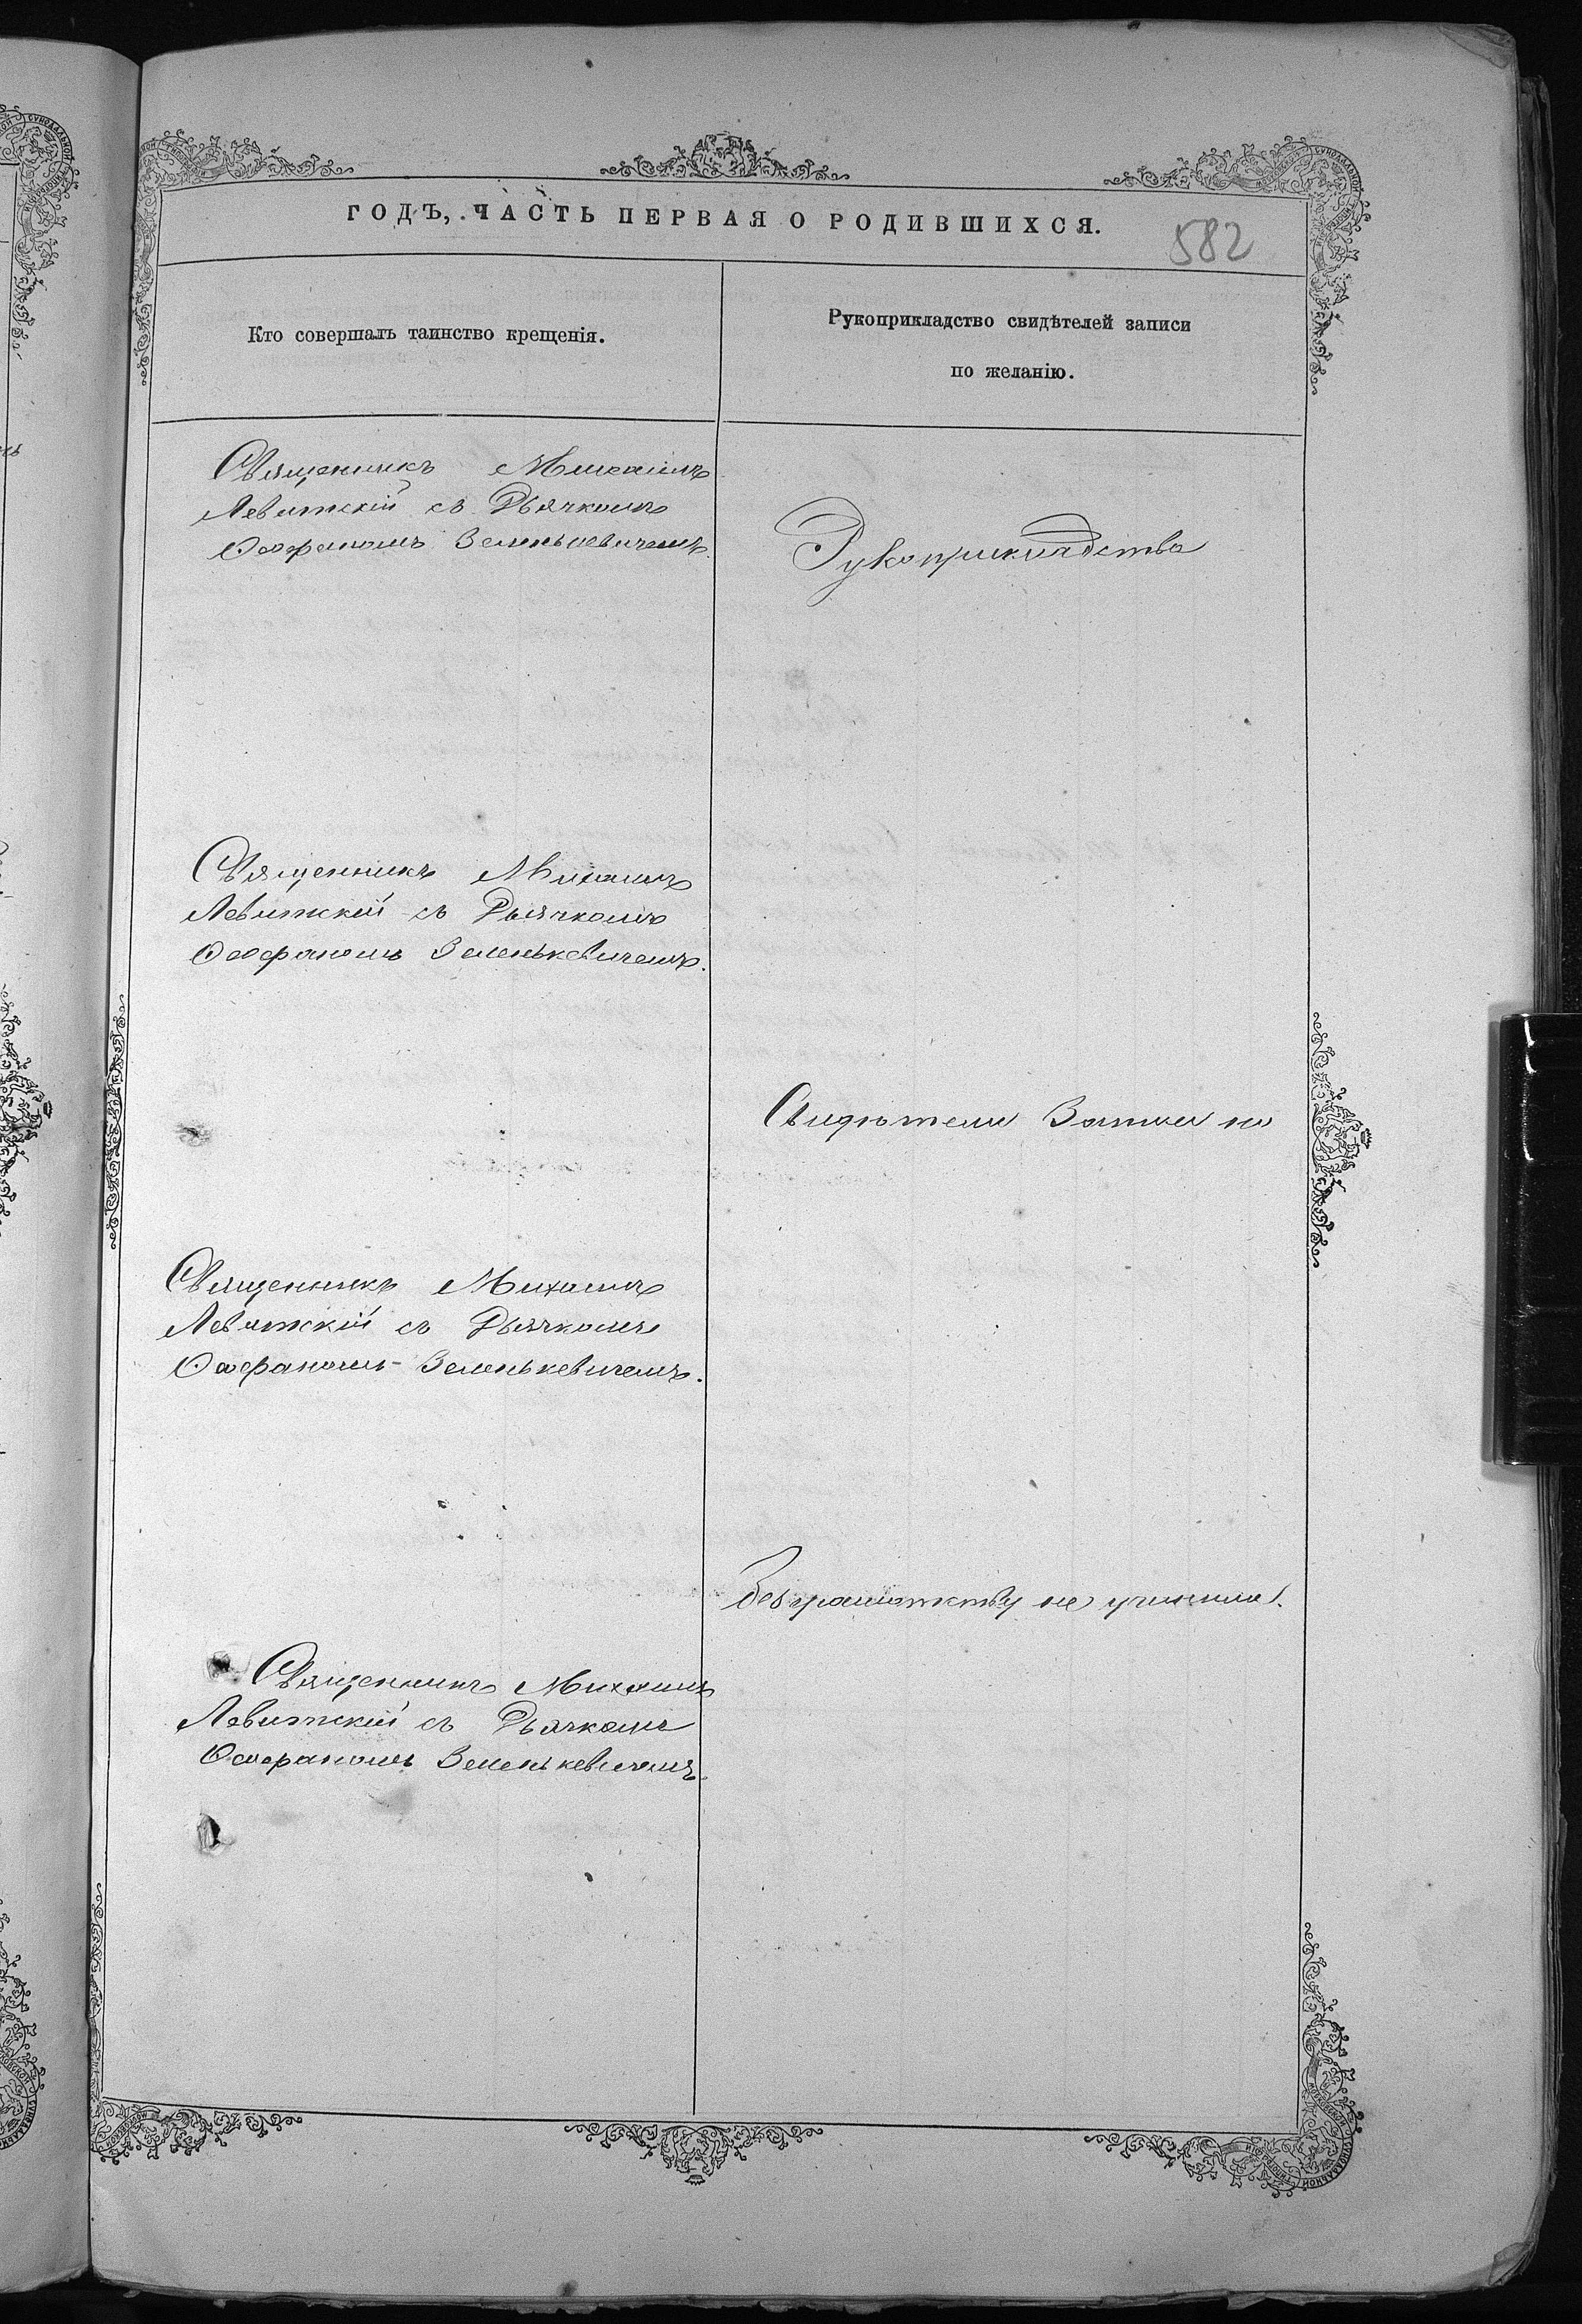 ГОДЪ, ЧАСТЬ ПЕРВАЯ О РОДИВШИХСЯ.
582
Кто совершалъ таинство крещенія.
Рукоприкладство свидѣтелей записи
по желанію.
Священникъ Михаилъ
Левитскій съ Дьячкомъ
Ѳеофаномъ Зеленькевичемъ.
Рукоприкладства
Священникъ Михаилъ
Левитскій съ Дьячкомъ
Ѳеофаномъ Зеленькевичемъ.
Свидѣтели Записи по
Священникъ Михаилъ
Левитскій съ Дьячкомъ
Ѳеофаномъ Зеленькевичемъ.
безграмотству не учинили.
Священникъ Михаилъ
Левитскій съ Дьячкомъ
Ѳеофаномъ Зеленькевичемъ